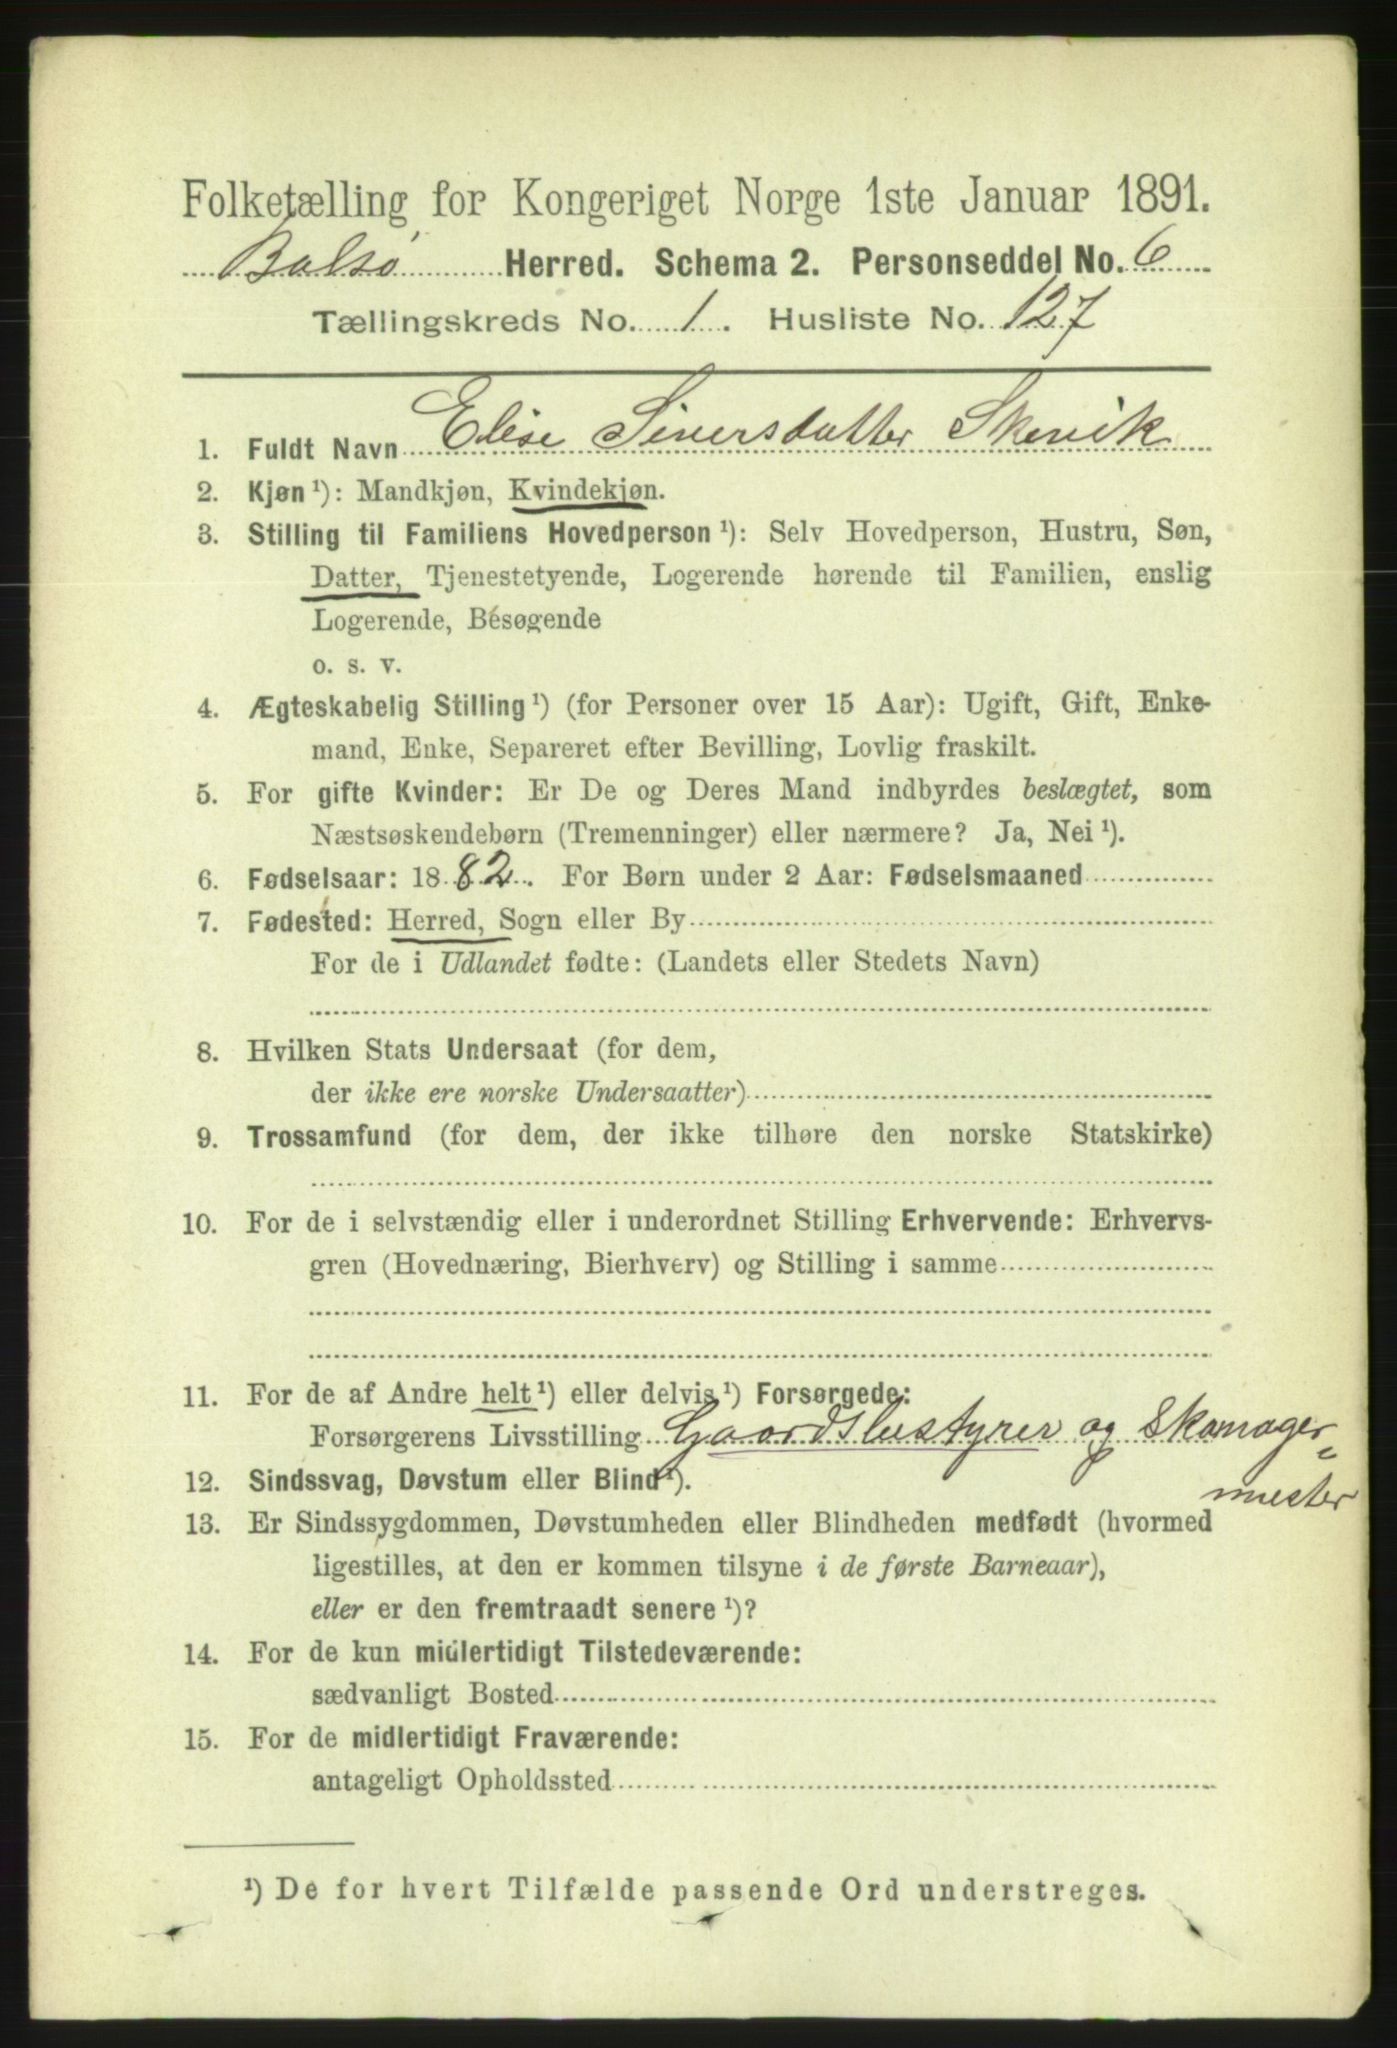 Folketælling for Kongeriget Norge 1ste Januar 1891.
Bolsø Herred. Schema 2. Personseddel No. 6
Tællingskreds No. 1. Husliste No. 127
1. Fuldt Navn Elise Siversdatter Skevik
2. Kjøn ¹): Mandkjøn, Kvindekjøn.
3. Stilling til Familiens Hovedperson ¹): Selv Hovedperson, Hustru, Søn,
Datter, Tjenestetyende, Logerende hørende til Familien, enslig
Logerende, Besøgende
o. s. v.
4. Ægteskabelig Stilling ¹) (for Personer over 15 Aar): Ugift, Gift, Enke-
mand, Enke, Separeret efter Bevilling, Lovlig fraskilt.
5. For gifte Kvinder: Er De og Deres Mand indbyrdes beslægtet, som
Næstsøskendebørn (Tremenninger) eller nærmere? Ja, Nei ¹).
6. Fødselsaar: 1882. For Børn under 2 Aar: Fødselsmaaned
7. Fødested: Herred, Sogn eller By
For de i Udlandet fødte: (Landets eller Stedets Navn)
8. Hvilken Stats Undersaat (for dem,
der ikke ere norske Undersaatter)
9. Trossamfund (for dem, der ikke tilhøre den norske Statskirke)
10. For de i selvstændig eller i underordnet Stilling Erhvervende: Erhvervs-
gren (Hovednæring, Bierhverv) og Stilling i samme
11. For de af Andre helt ¹) eller delvis ¹) Forsørgede:
Forsørgerens Livsstilling Gaardsbestyrer og Skomager-
mester
12. Sindssvag, Døvstum eller Blind ¹).
13. Er Sindssygdommen, Døvstumheden eller Blindheden medfødt (hvormed
ligestilles, at den er kommen tilsyne i de første Barneaar),
eller er den fremtraadt senere ¹)?
14. For de kun midlertidigt Tilstedeværende:
sædvanligt Bosted
15. For de midlertidigt Fraværende:
antageligt Opholdssted
¹) De for hvert Tilfælde passende Ord understreges.